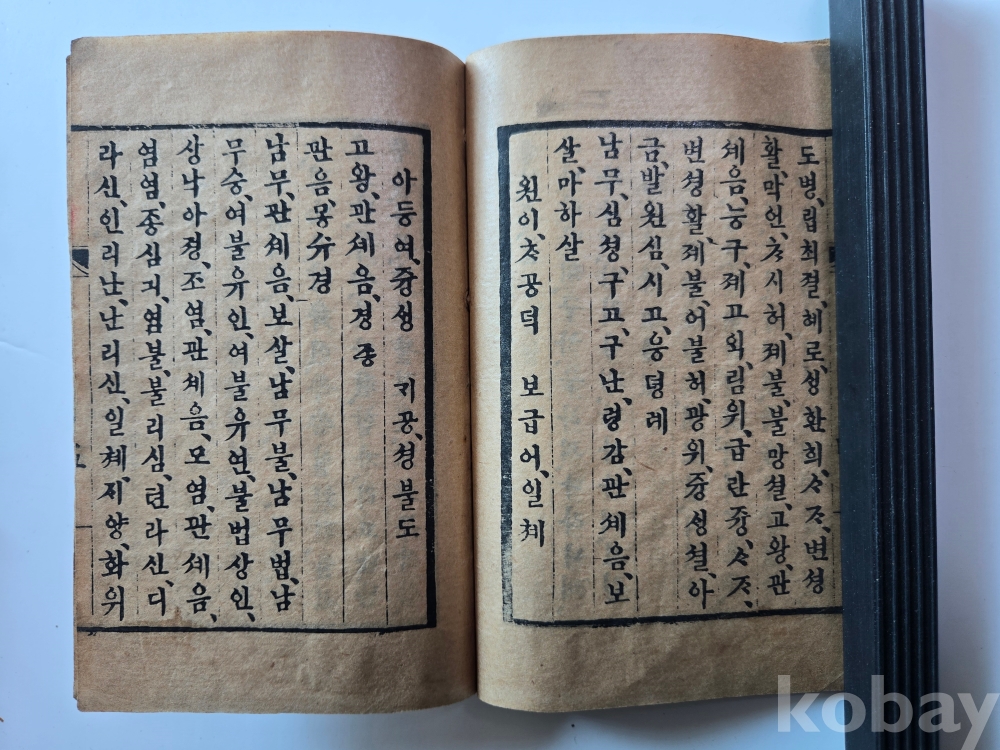 도병、립최졀、혜로、셩환희、ᄉᆞᄌᆞ、변셩
활、막언、ᄎᆞ시허、졔불、불망셜、고왕、관
셰음、능구、졔고외、림위、급란즁、ᄉᆞᄌᆞ、
변셩활、졔불、어불허、광위、즁셩셜、아
금、발원심、시고、응뎡례
남무、심셩、구고、구난、령감、관셰음、보
살、마하살
원이、ᄎᆞ공덕 보급어、일쳬
아등여、즁생 기공、셩불도
고왕、관셰음、경 종
관음、몽슈경
남무、관셰음、보살、남무불、남무법、남
무승、여불유인、여불유연、불법상인、
상낙아졍、조염、관셰음、모염、관셰음、
염염、종심긔、염불、불리심、텬라신、디
라신、인리난、난리신、일쳬、ᄌᆡ양、화위
kobay